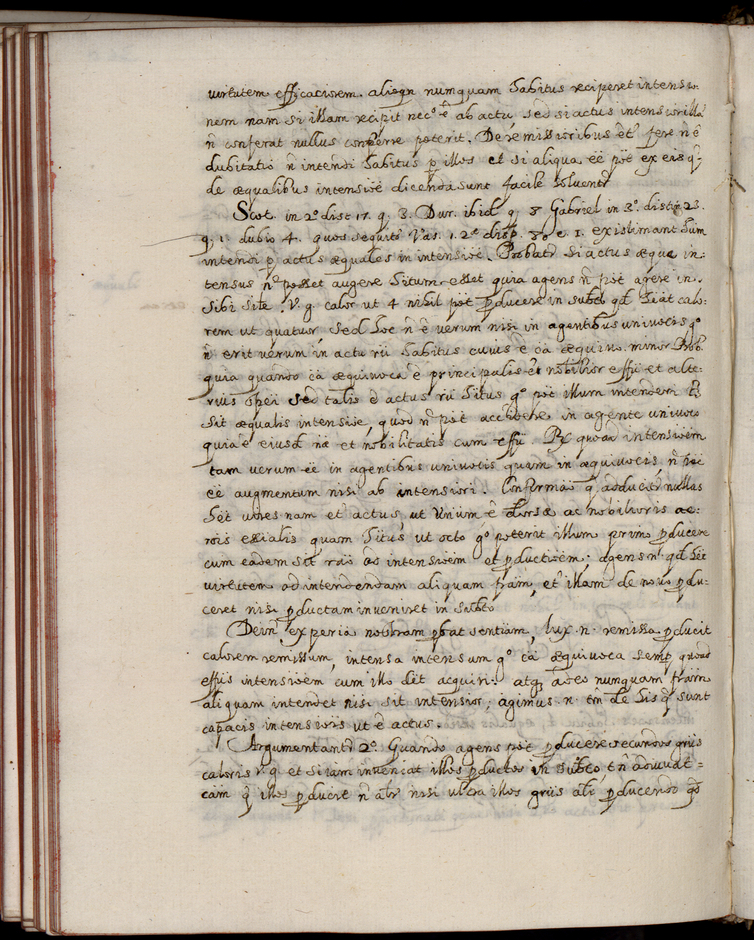 virtutem efficaciorem. alioqn numquam habitus reciperet intensio-
nem nam si illam recipit necº ẽ ab actu sed si actus intensior illā
ñ conferat nullus conferre poterit. De remissioribus et fere ñ ẽ
dubitatio ñ intendi habitus p illos et si aliqua eẽ põt ex eis q̃
de æqualibus intensioẽ dicenda sunt facile solventr
Scot. in 2º dist 17. q. 3. Dur. ibid q. 8 Gabriel in 3º. distin 23.
q. 1. dubio 4. quos sequitr Vas. 1. 2æ disp. 80 c. 1. existimant hum
intendi p actus æquales in intensioẽ. Probatr si actus æque in-
tensus nº posset augere habitum esset quia agens ñ põt agere in
sibi sile v. g. calor ut 4 nihil põt pducere in subto qd hẽat calo-
rem ut quatuor, sed hoc ñ ẽ verum nisi in agentibus univocis gº
ñ erit verum in actu rũ habitus cuius ẽ cã æquivo. minor Prob.
quia quando cã æquivoca ẽ principalis et nobilior effũ et alte-
rius spei sed talis ẽ actus rũ hitus gº põt illum intendere
sit æqualis intensioẽ, quod ñ põt accidere in agente univoco
quia ẽ eiusd nã et nobilitatis cum effũ. Rx quoad intensioẽm
tam verum eẽ in agentibus univocis quam in æquivocis, ñ
eẽ augmentum nisi ab intensiori. Confirmao q adducitr nullas
het vires nam et actus, ut unum ẽ diversæ ac nobilioris
rõis quam hitus, ut octo gº poterit illum primo pducere
cum eadem sit raõ ad intensioẽm et pductioẽm; agens n. qd het
virtutem ad intendendam aliquam fram, et illam de novo pdu-
ceret nisi pductam inveniret in subto
Dein experiã nostram pbat sentiam, lux n. remissa pducit
calorem remissum, intensa intensum gº cã æquivoca semp quoad
effus intensioẽm cum illo dẽt acquiri: atq adeo nunquam fram
aliquam intendet nisi sit intensior; agimus n. tm̃ de his q̃ sunt
capacis intensioris ut ẽ actus.
Argumentantr 2º. Quando agens põt pducere secundos grũs
caloris v. g. et si iam inveniat illos pductos in subto, tñ aduvat-
cam q illos pducit ñ nisi ultra illos grũs pducendo